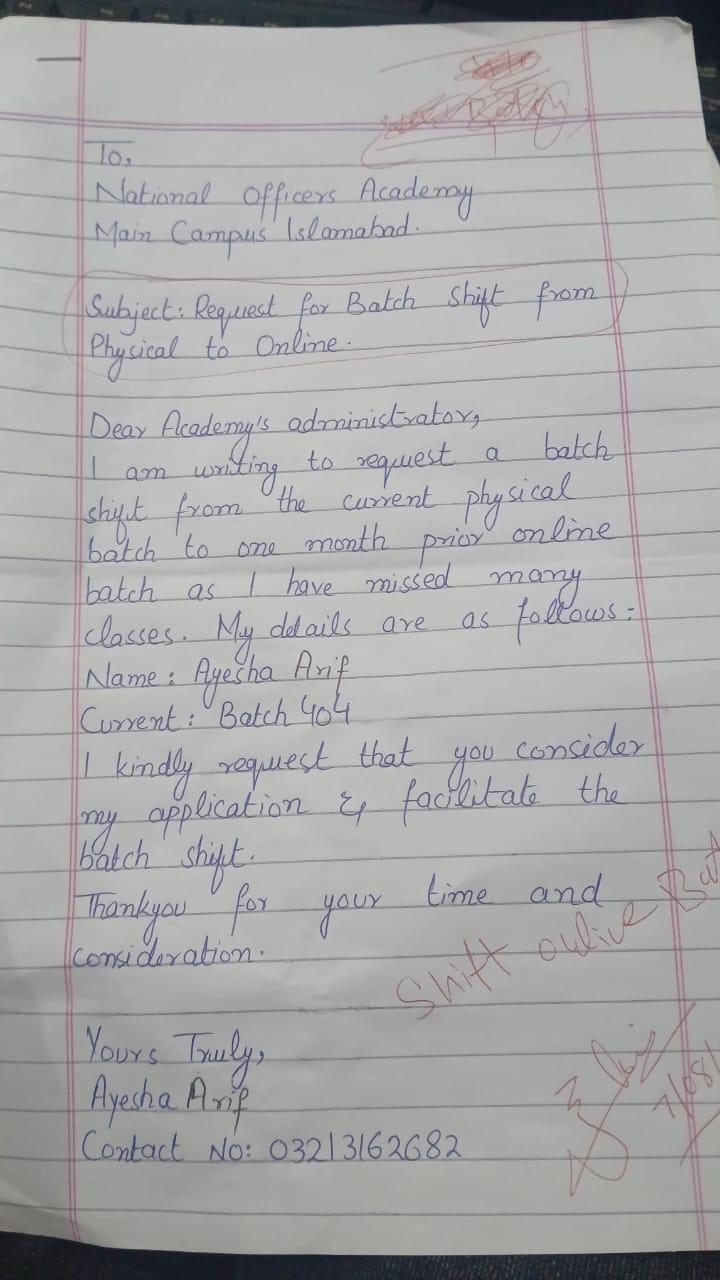 To,
National Officers Academy
Main Campus Islamabad.
Subject: Request for Batch Shift from
Physical to Online.
Dear Academy's administrator,
I am writing to request a batch
shift from the current physical
batch to one month prior online
batch as I have missed many
classes. My details are as follows:-
Name: Ayesha Arif
Current: Batch 404
I kindly request that you consider
my application & facilitate the
batch shift.
Thankyou for your time and
consideration.
Shift online Bat
Yours Truly,
Ayesha Arif
Contact No: 03213162682
7/08/